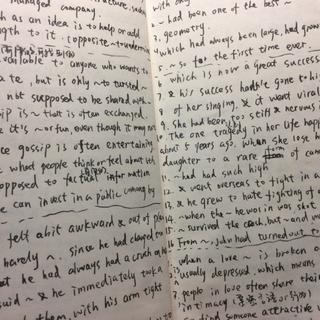 managed company.
ch as an idea is to help or add
ngth to it. opposite ~ to undermin
available to anyone who wants to
te, but is only ~ to turned
not supposed to be shared with ~
sip is ~ that is often exchanged.
e it's ~ or fun, even though it may not
ce gossip is often entertaining
what people think or feel about
opposed to factual information
can invest in a public company by
felt abit awkward & out of place
hardely ~. since he had
but he had always had a crush on
said ~ & he immediately took a
them, with his arm tight
with only
~ had been one of the best ~
3. geometry.
which had always been large, had grown
5. ~ so for the first time ever.
6. which is now a great success
7. & his success hadn't gone to his
8. of her singing, & it went viral
9. She had been too stiff & nervous
10. The one tragedy in her life happ
about 5 years ago. When she lose h
daughter to a rare form of canc
~ had had such high
12. & went overseas to fight in a
13. & he grew to hate fighting of
14. ~when the ~ he was in was shot
15. ~ survived the crash, but ~ and
16. From ~, John had turned out to
when a love ~ is broken o
is usually depressed. which means
7. people in love often share their
intimacy
find someone attractive